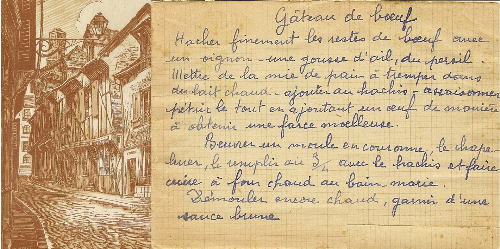 Gâteau de bœuf
Hacher finement les restes de bœuf avec
un oignon - une gousse d'ail, du persil.
Mettre de la mie de pain à tremper dans
du lait chaud - ajouter au hachis - assaisonner
pétrir le tout en ajoutant un œuf de manière
à obtenir une farce moelleuse.
Beurrer un moule en couronne, le chape-
lurer, le remplir au 3/4 avec le hachis et faire
cuire à four chaud au bain marie.
Démouler encore chaud, garnir d'une
sauce brune